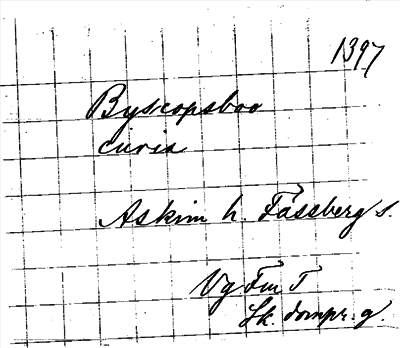 1397
Byscopsboo
curia
Askim h. Fässberg s.
Vg Fm T
Sk. dompr. g.